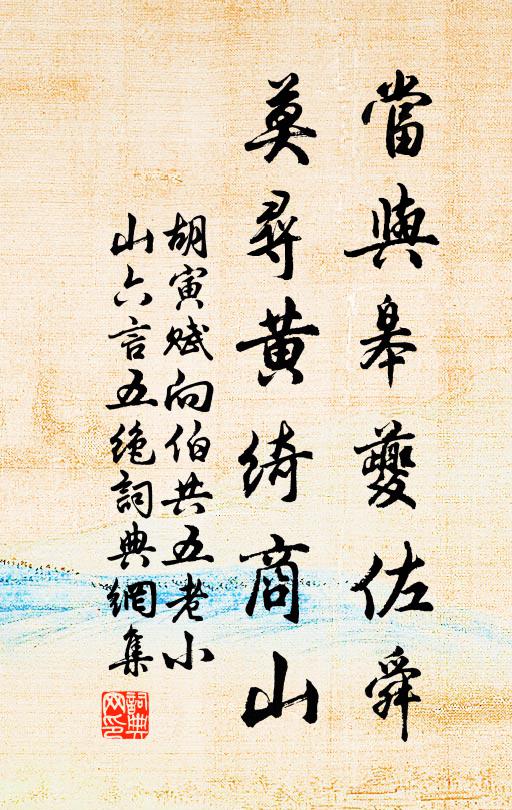 當與皋夔佐舜
莫尋黃綺商山
胡寅賦向伯共五老小
山六言五絶詞典網集
詞典
网印